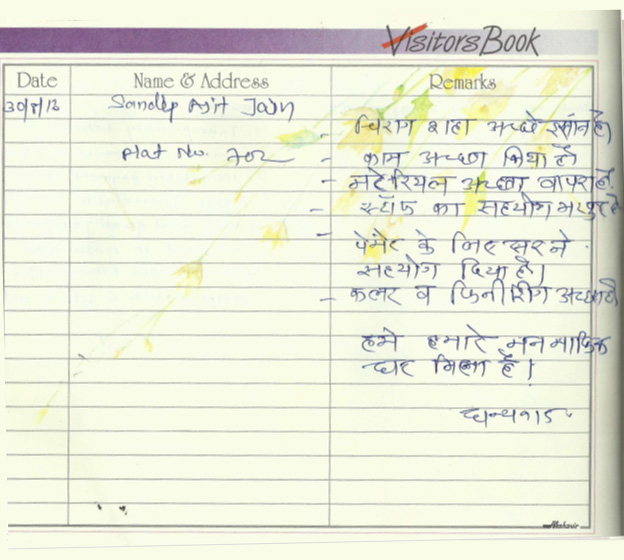 Visitors Book
Date Name & Address Remarks
30/8/13 Sandip Ajit Jain
- चिराग शहा अच्छे इसांन है।
Flat No. 702 - काम अच्छा किया है।
- मटेरियल अच्छा वापरा है.
- स्टॉफ का सहयोग भरपुर है
- पेमेंट के लिए सर ने
सहयोग दिया है।
- कलर व फिनीशिंग अच्छा है
हमे हमारे मन माफिक
घर मिला है।
धन्यवाद